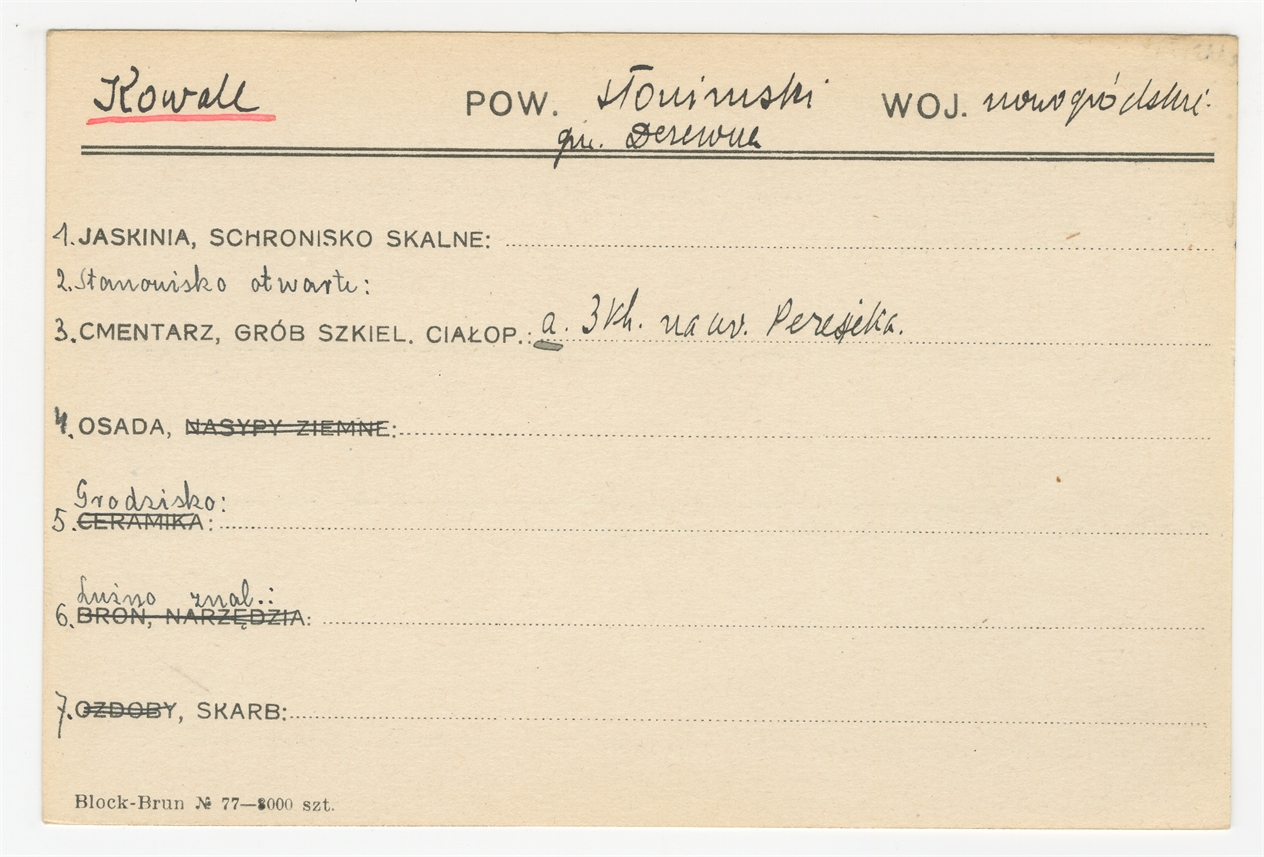 Kowale POW. słonimski WOJ. nowogródzki.
gm. Derewna
1. JASKINIA, SCHRONISKO SKALNE:
2. Stanowisko otwarte:
3. CMENTARZ, GRÓB SZKIEL. CIAŁOP.: a. 3 kh. na uw.
4. OSADA, NASYPY ZIEMNE:
Grodzisko:
5. CERAMIKA:
Luźno znal.:
6. BROŃ, NARZĘDZIA:
7. OZDOBY, SKARB:
Block-Brun № 77—8000 szt.